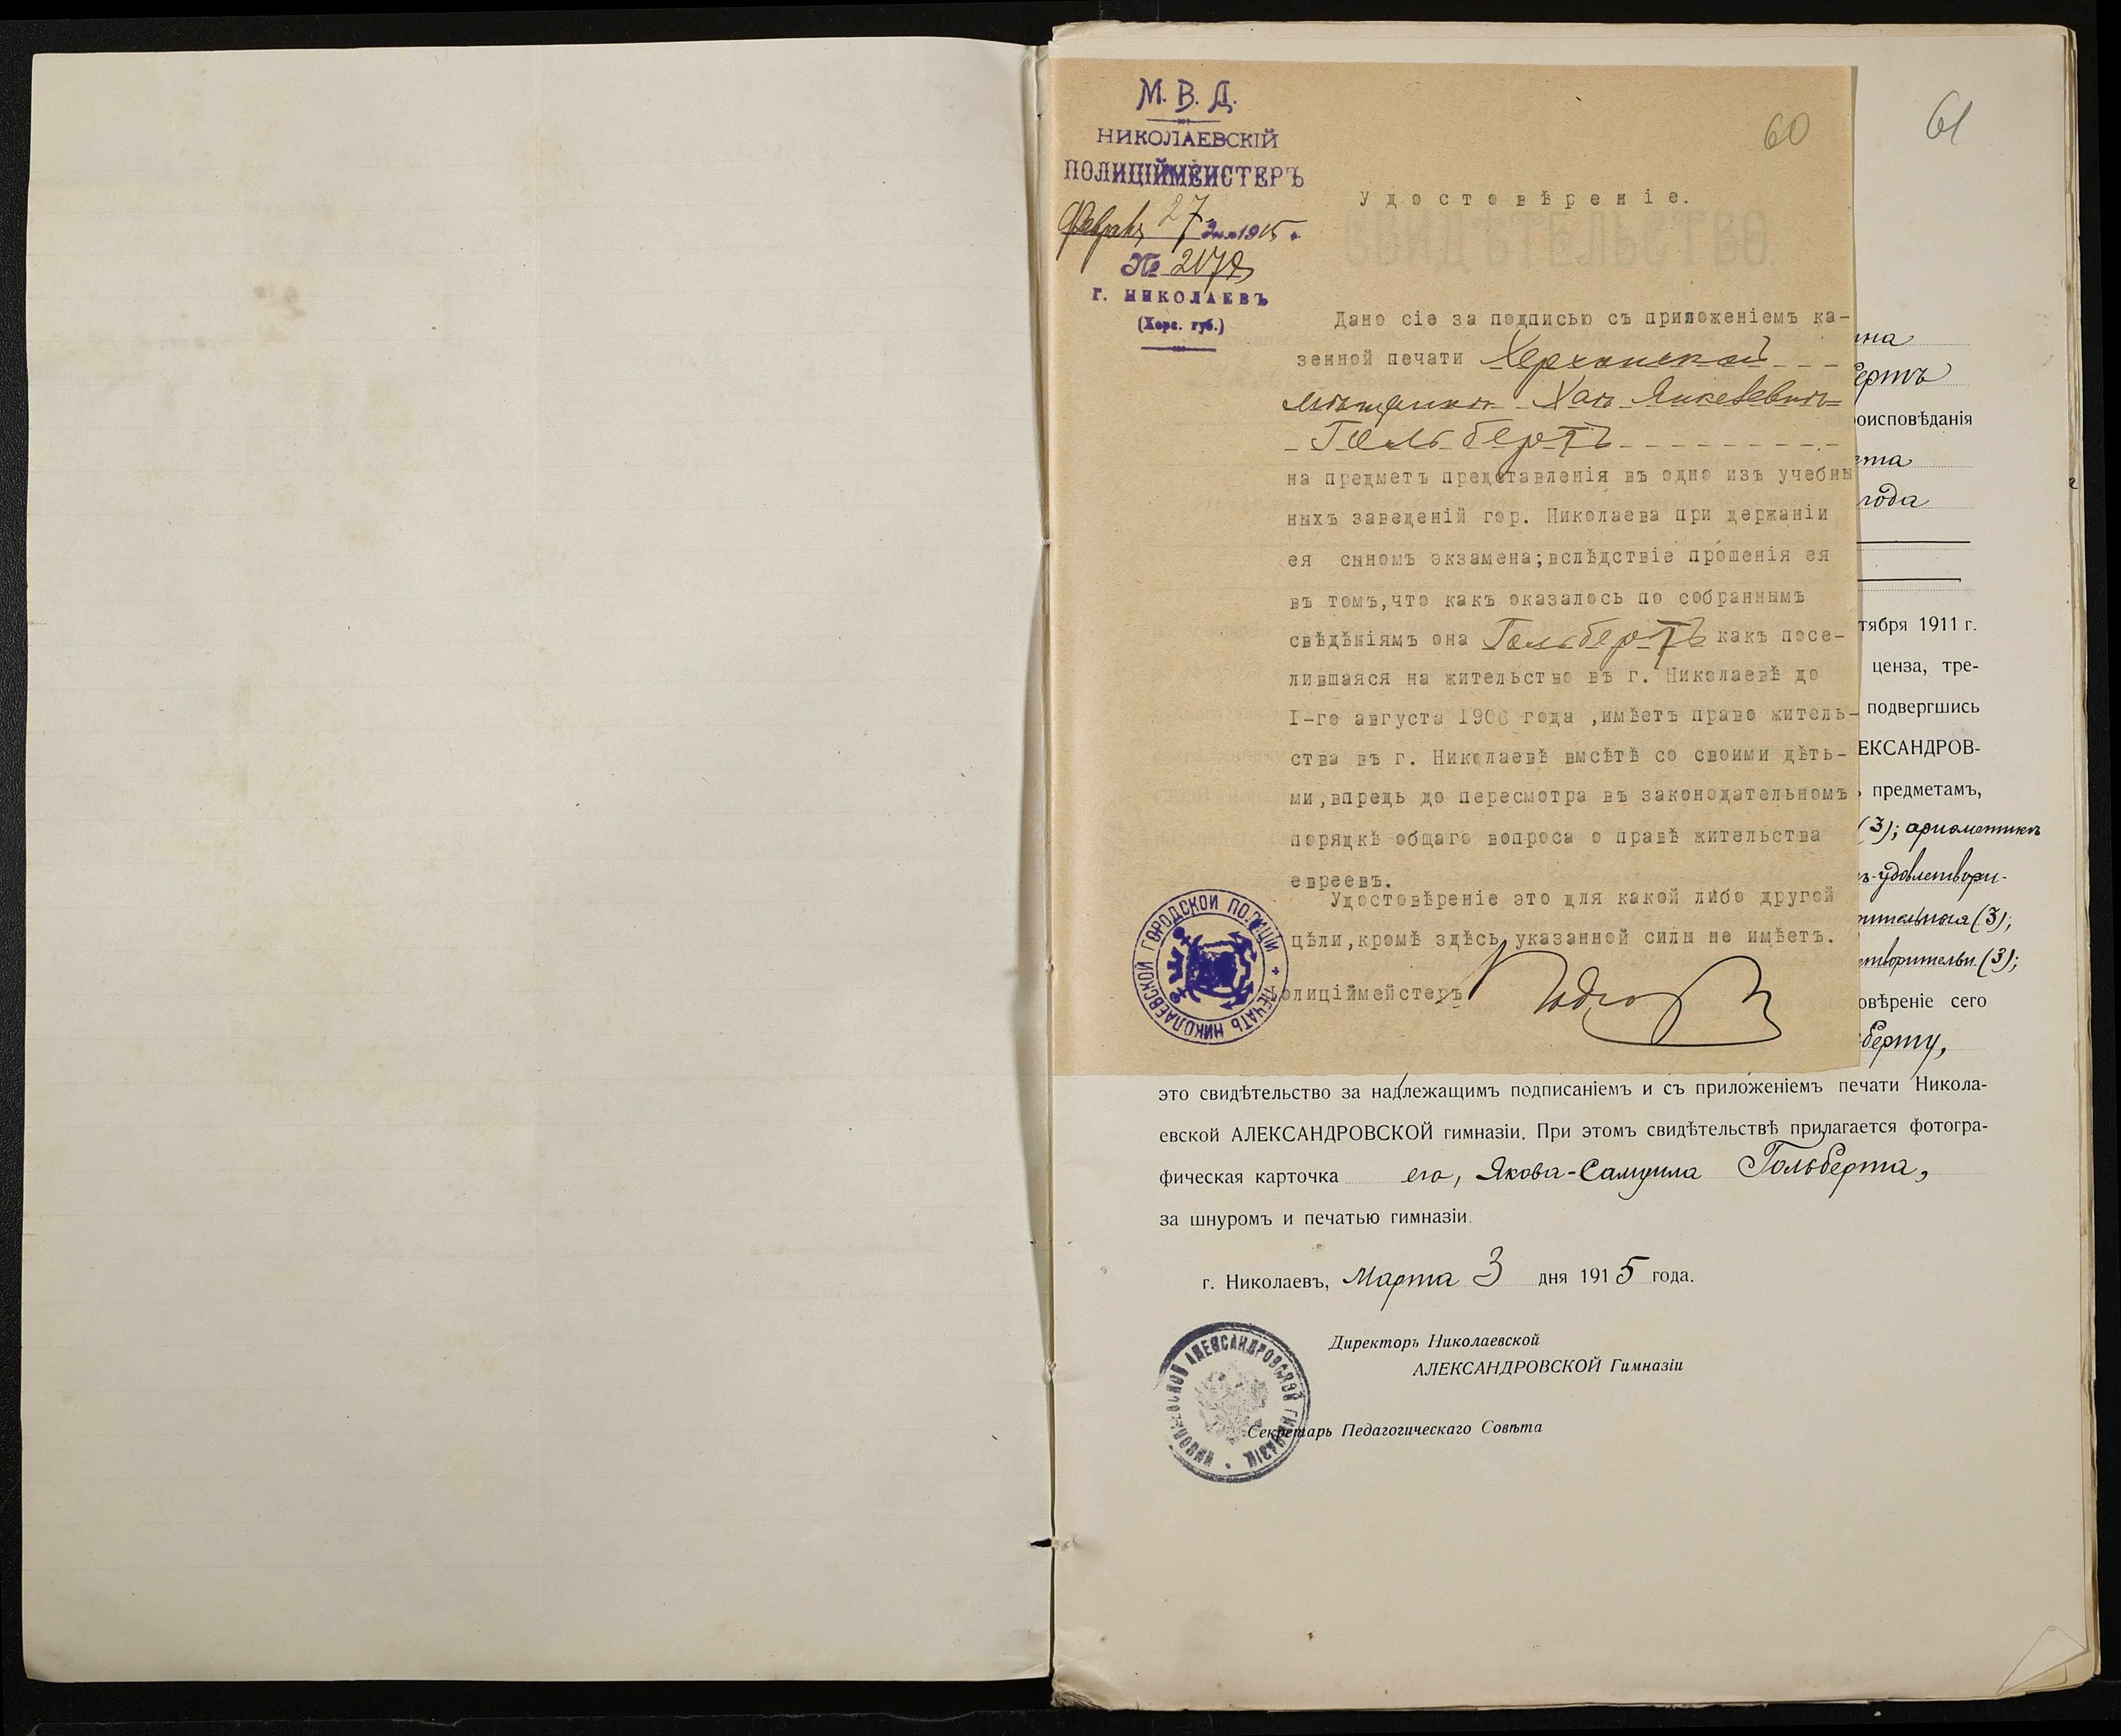 М. В. Д.
НИКОЛАЕВСКІЙ
ПОЛИЦІЙМЕЙСТЕРЪ
27 дня 1915 г.
№
Г. НИКОЛАЕВЪ
(Херс. губ.)
60
61
Удостовѣреніе.
СВИДѢТЕЛЬСТВО
Дано сіе за подписью съ приложеніемъ ка-
зенной печати Херсонской
мѣщанкѣ Хаѣ
Гольбертъ
на предметъ представленія въ одно изъ учебны
ныхъ заведеній гор. Николаева при держаніи
ея сыномъ экзамена; вслѣдствіе прошенія ея
въ томъ, что какъ оказалось по собраннымъ
свѣдѣніямъ она Гольбертъ какъ посе-
лившаяся на жительство въ г. Николаевѣ до
I-го августа 1906 года ,имѣетъ право житель-
ства въ г. Николаевѣ вмсѣтѣ со своими дѣть-
ми, впредь до пересмотра въ законодательномъ
порядкѣ общаго вопроса о правѣ жительства
евреевъ.
Удостовѣреніе это для какой либо другой
цѣли, кромѣ здѣсь указанной силы не имѣетъ.
олиціймейстеръ
ПЕЧАТЬ НИКОЛАЕВСКОЙ ГОРОДСКОЙ ПОЛИЦІИ
ина
бертъ
оисповѣданія
ета
года
тября 1911 г.
ценза, тре-
подвергшись
ЕКСАНДРОВ-
предметамъ,
(3); ариѳметикѣ
ъ-удовлетвори-
ительная (3);
етворительн. (3);
овѣреніе сего
берту,
это свидѣтельство за надлежащимъ подписаніемъ и съ приложеніемъ печати Никола-
евской АЛЕКСАНДРОВСКОЙ гимназіи. При этомъ свидѣтельствѣ прилагается фотогра-
фическая карточка его, Якова-Самуила Гольберта,
за шнуромъ и печатью гимназіи.
г. Николаевъ, Марта 3 дня 1915 года.
Директоръ Николаевской
АЛЕКСАНДРОВСКОЙ Гимназіи
Секретарь Педагогическаго Совѣта
НИКОЛАЕВСКОЙ АЛЕКСАНДРОВСКОЙ ГИМНАЗІИ